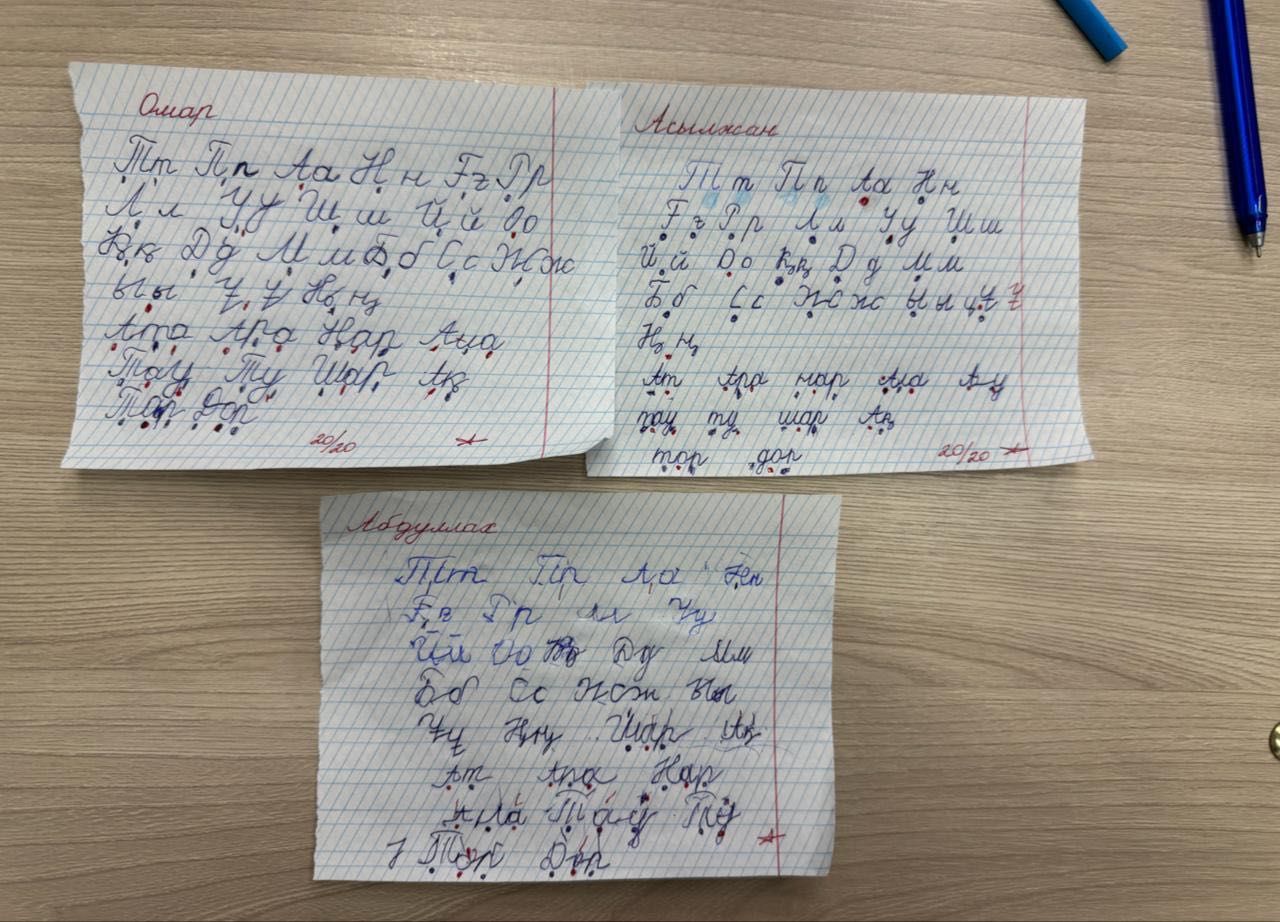 Омар
Тт Пп Аа Нн Ғғ Рр
Лл Уу Шш Йй Оо
Ққ Дд Мм Бб Сс Жж
Ыы Ұұ Ңң
Ата Ара Нар Ана
Тау Ту Шар Ақ
Тор Дор
20/20
Асылжан
Тт Пп Аа Нн
Ғғ Рр Лл Уу Шш
Йй Оо Ққ Дд Мм
Бб Сс Жж Ыы ұ Ұ Ұ
Ңң
Ат Ара нар Ана Ау
тау ту шар Ақ
тор дор
20/20
Абдуллах
Тт Пр Аа Нн
Ғғ Рр лл Уу
Йй Оо Дд Мм
Бб Сс Жж Ыы
Ұұ Ңң Шар Ақ
Ат Ара Нар
Ана Тау Ту
Тор Дор